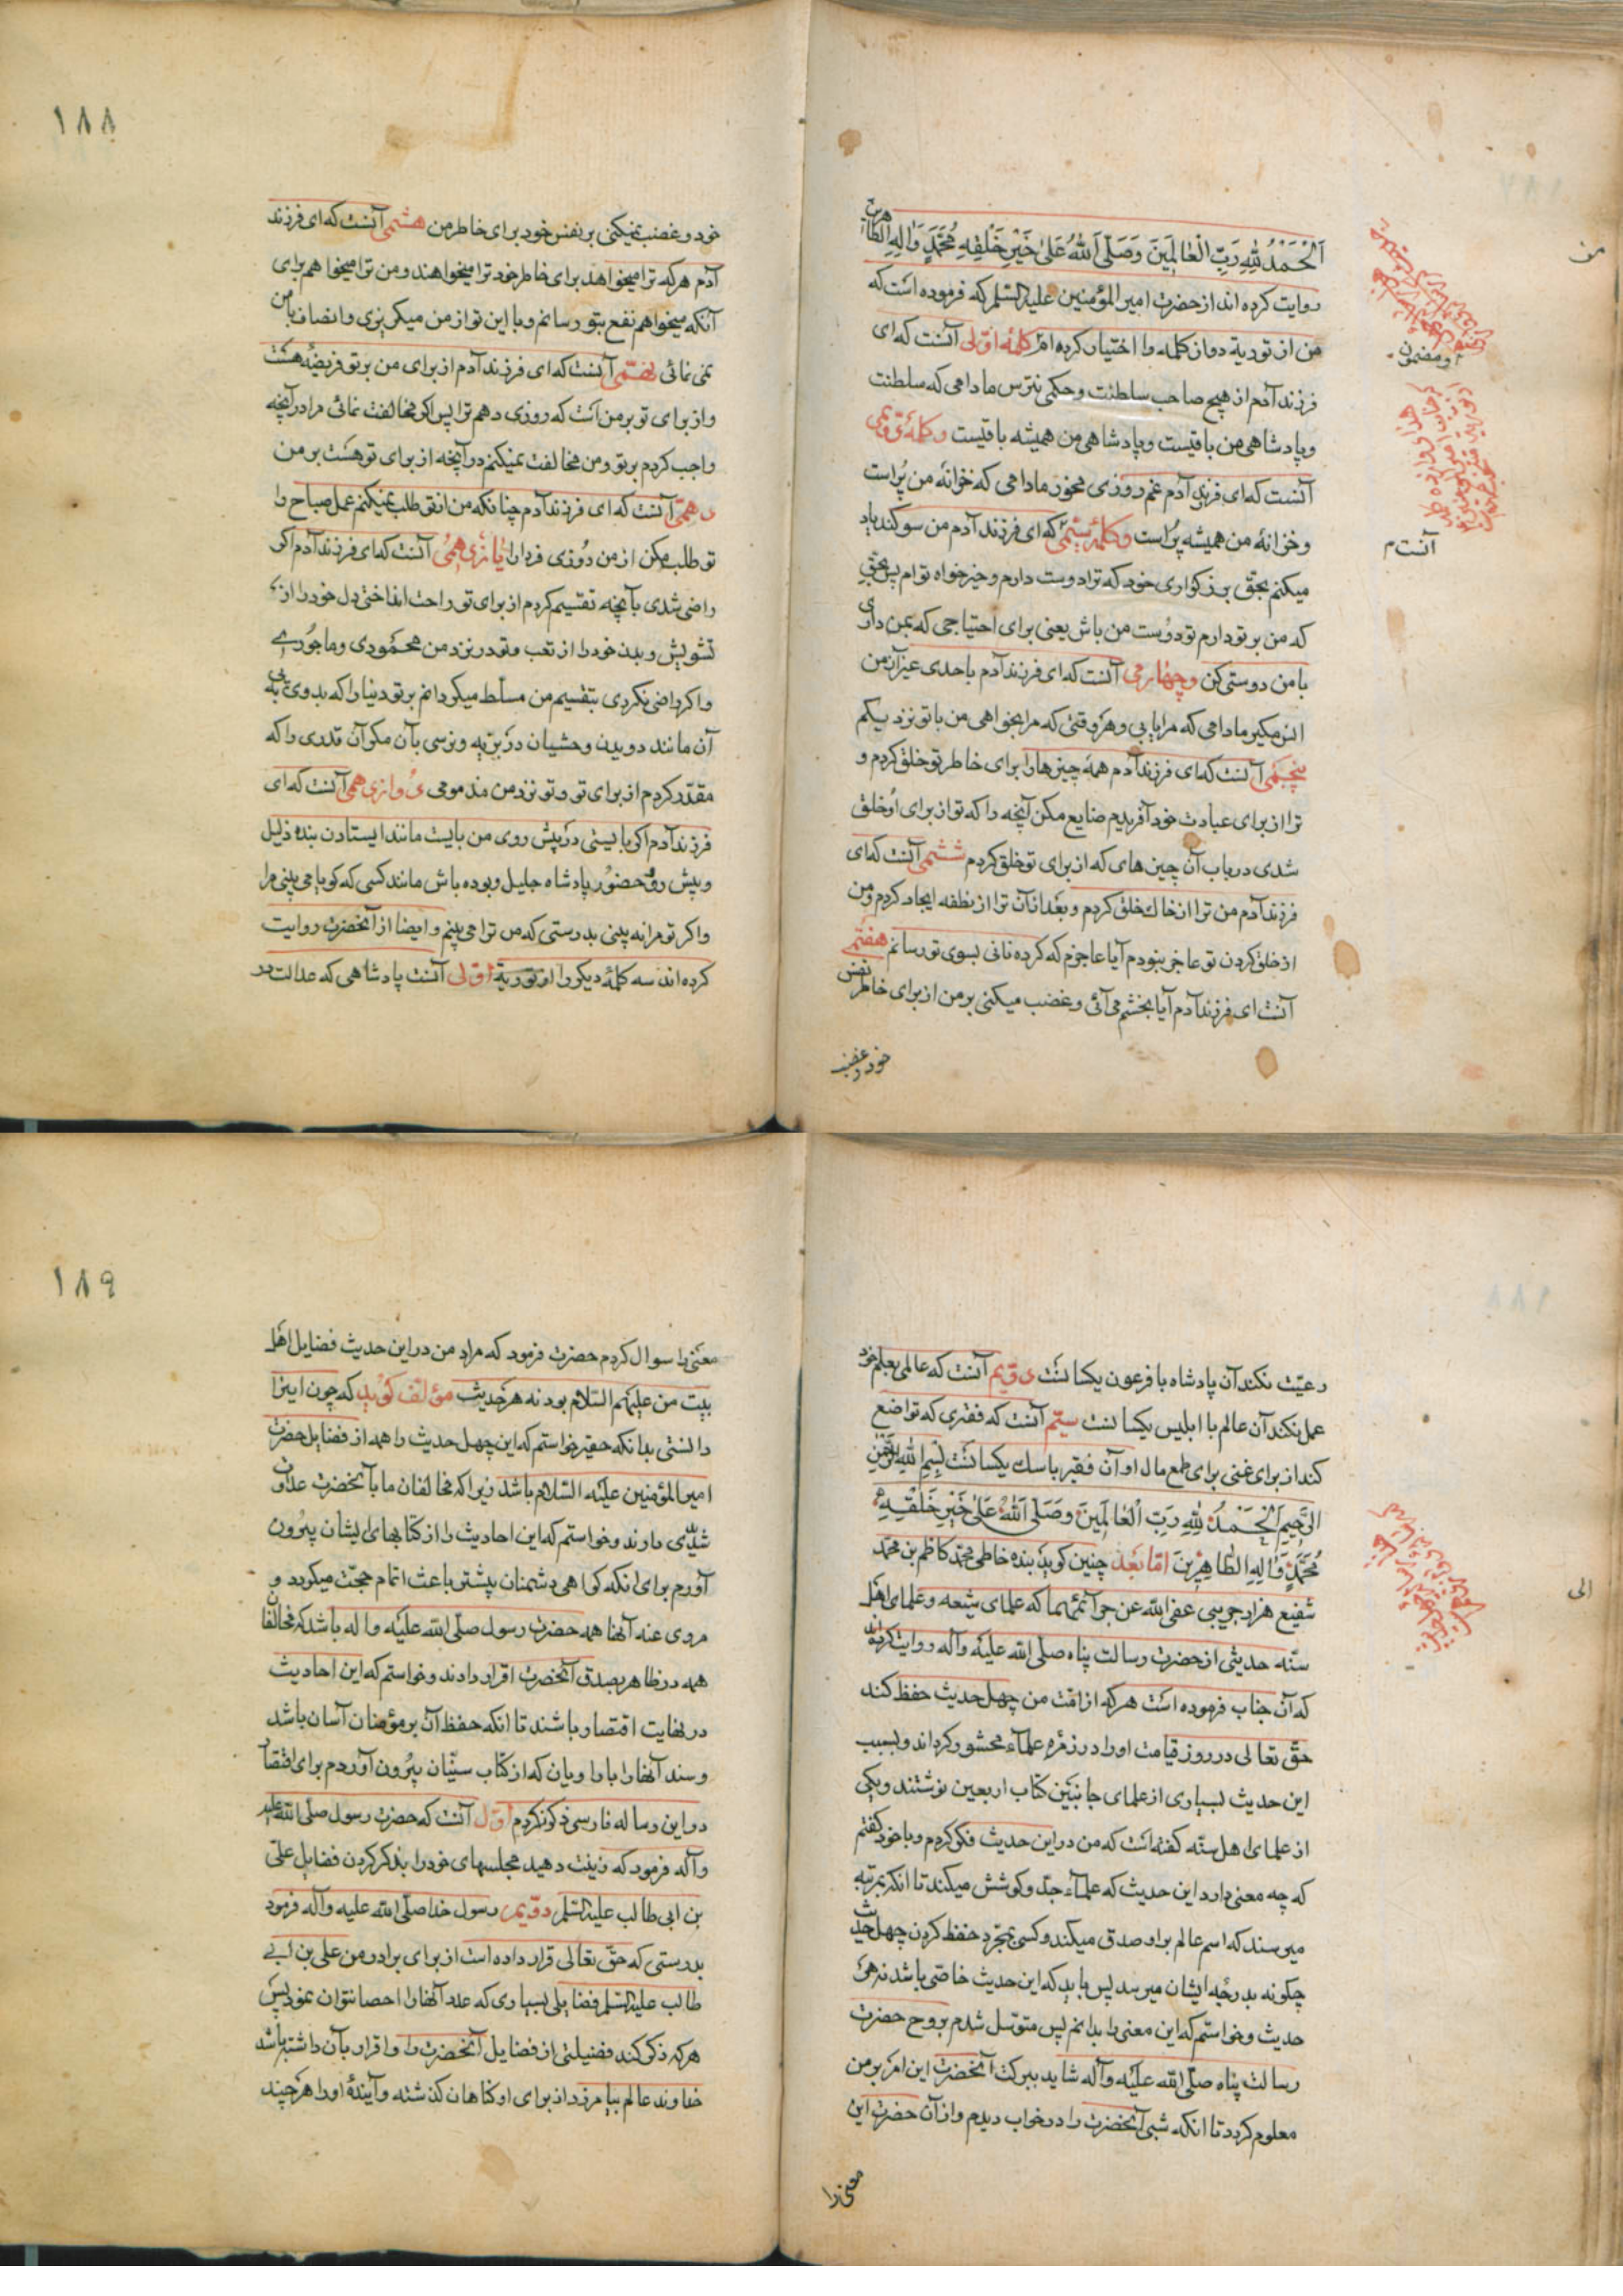 اَلْحَمْدُ لِلّٰهِ رَبِّ الْعٰالَمِينَ وَصَلَّى اَللّٰهُ عَلىٰ خَيْرِ خَلْقِهِ مُحَمَّدٍ وَاٰلِهِ الطّاهرين
روايت كرده اند از حضرت امير المؤمنين عليه السلم كه فرموده است كه
من از تورية دوازكلمه را اختيار كرده ام كلمهٔ اوّلى آنست كه اى
فرزند آدم از هيچ صاحب سلطنت و حكمى نترس مادامى كه سلطنت
وپادشاهى من باقيست وپادشاهى من هميشه باقيست وكلمهٔ دويمى
آنست كه اى فرزند آدم غم روزى مخور مادامى كه خزانهٔ من پُر است
وخزانهٔ من هميشه پُر است وكلمهٔ سيّمى كه اى فرزند آدم من سوكند ياد
ميكنم بحقّ بزركوارى خود كه ترا دوست دارم وخيرخواه توام پس بحقّ
كه من بر تو دارم تو دوُست من باش يعنى براى احتياجى كه بمن دارى
با من دوستى كن وچهارمى آنست كه اى فرزند آدم باحدى غير از من
انس مكير مادامى كه مرا يابى وهر وقتى كه مرا بخواهى من با تو نزديكم
پنجمى آنست كه اى فرزند آدم همهٔ چيزهارا براى خاطر تو خلق كردم و
ترا از براى عبادت خود آفريدم ضايع مكن آنچه را كه تو از براى اوُ خلق
شدى درباب آن چيزهاى كه از براى تو خلق كردم ششمى آنست كه اى
فرزند آدم من ترا از خاك خلق كردم وبعد از آن ترا از نطفه ايجاد كردم ومن
از خلق كردن تو عاجز نبودم آيا عاجزم كه كرده نانى بسوى تو رسانم هفتمى
آنست اى فرزند آدم آيا بخشم مى آئى وغضب ميكنى بر من از براى خاطر نفس
خود و غضب
من
ومضمون
آنست م
١٨٨
خود وغضب نميكنى بر نفس خود براى خاطر من هشتمى آنست كه اى فرزند
آدم هركه ترا ميخواهد براى خاطر خود ترا ميخواهند ومن ترا ميخواهم براى
آنكه ميخواهم نفع بتو رسانم وبا اين تو از من ميكريزى وانصاف بامن
نمى نمائى نهمى آنست كه اى فرزند آدم از براى من بر تو فريضهٔ هست
واز براى تو بر من است كه روزى دهم ترا پس اكر مخالفت نمائى مرا در آنچه
واجب كردم بر تو ومن مخالفت نميكنم در آنچه از براى تو هست بر من
دهمى آنست كه اى فرزند آدم چنانكه من از تو طلب نميكنم عمل صباح را
تو طلب مكن از من روُزى فردا را يازدهمى آنست كه اى فرزند آدم اكر
راضى شدى بآنچه تقسيم كردم از براى تو راحت انداختى دل خود را از
تشويش وبدن خود را از تعب وتو در نزد من محمودى وماجورى
واكر راضى نكردى بتقسيم من مسلّط ميكردانم بر تو دنيا را كه بدوى پى
آن مانند دويدن وحشيان در بريه ونرسى بآن مكر آن قدرى را كه
مقدّر كردم از براى تو وتو نزد من مذمومى دوازدهمى آنست كه اى
فرزند آدم اكر بايستى در پيش روى من بايست مانند ايستادن بنده ذليل
وپيش روى حضور پادشاه جليل وبوده باش مانند كسى كه كويا مى بينى مرا
واكر تو مرا نه بينى بدرستى كه من ترا مى بينم وايضا از آنحضرت روايت
كرده اند سه كلمهٔ ديكر را از تورية اوّلى آنست پادشاهى كه عدالت در
رعيّت نكند آن پادشاه با فرعون يكسانست دويم آنست كه عالمى بعلم خود
عمل نكند آن عالم با ابليس يكسانست سيّم آنست كه فقرى كه تواضع
كند از براى غنى براى طمع مال او آن فقير با سك يكسانست بِسْمِ اللهِ الرَّحْمنِ
الرَّحِيمِ اَلْحَمْدُ لِلّٰهِ رَبِّ الْعٰالَمِينَ وصَلَّى اَللّٰهُ عَلىٰ خَيْرِ خَلْقِهِ
مُحَمَّدٍ وَاٰلِهِ الطّاهِرِينَ امّا بعَد چنين كويد بنده خاطى محمّد كاظم بن محمّد
شفيع هزارجريبى عفى الله عن جرآئمهما كه علماى شيعه وعلماى اهل
سنّه حديثى از حضرت رسالت پناه صلّى الله عليه وآله روايت كرده اند
كه آن جناب فرموده است هركه از امّت من چهل حديث حفظ كند
حقّ تعالى در روز قيامت او را در زمرهٔ علمآء محشور كرداند وبسبب
اين حديث بسيارى از علماى جانبين كتاب اربعين نوشتند ويكى
از علماى اهل سنّه كفته است كه من در اين حديث فكر كردم وبا خود كفتم
كه چه معنى دارد اين حديث كه علمآء جدّ وكوشش ميكند تا انكه بمرتبه
ميرسند كه اسم عالم بر او صدق ميكند وكسى بمجرّد حفظ كردن چهل حديث
چكونه بدرجهٔ ايشان ميرسد پس بايد كه اين حديث خاصّى باشد نه هر
حديث وخواستم كه اين معنى را بدانم پس متوسّل شدم بروح حضرت
رسالت پناه صلّى الله عليه وآله شايد ببركت آنحضرت اين امر بر من
معلوم كردد تا انكه شبى آنحضرت را در خواب ديدم واز آن حضرت اين
معنى را
الى
١٨٩
معنى را سوال كردم حضرت فرمود كه مراد من در اين حديث فضايل اهل
بيت من عليهم السّلام بود نه هر حديث مؤلّف كويد كه چون اين را
دانستى بدانكه حقير خواستم كه اين چهل حديث را همه از فضايل حضرت
امير المؤمنين عليه السّلام باشد زيرا كه مخالفان ما با آنحضرت عداوت
شديدى دارند وخواستم كه اين احاديث را از كتابهاى ايشان بيرون
آورم براى انكه كواهى دشمنان بيشتر باعث اتمام حجّت ميكردد و
مروى عنه آنها همه حضرت رسول صلّى الله عليه واله باشد كه مخالفان
همه در ظاهر بصدق آنحضرت اقرار دادند وخواستم كه اين احاديث
در نهايت اقتصار باشند تا انكه حفظ آن بر مؤمنان آسان باشد
وسند آنها را با راويان كه از كتاب سنّيان بيرون آوردم براى اقتصار
در اين رساله فارسى ذكر نكردم اوّل آنست كه حضرت رسول صلّى الله عليه
وآله فرمود كه زينت دهيد مجلسهاى خود را بذكر كردن فضايل علىّ
بن ابى طالب عليه السّلم دوّيم رسول خدا صلّى الله عليه وآله فرمود
بدرستى كه حقّ تعالى قرار داده است از براى برادر من على بن ابى
طالب عليه السّلم فضايلى بسيارى كه عدد آنها را احصا نتوان نمود پس
هركه ذكر كند فضيلتى از فضايل آنحضرت را واقرار بآن داشته باشد
خداوند عالم بيامرزد از براى او كناهان كذشته وآيندهٔ او را هرچند